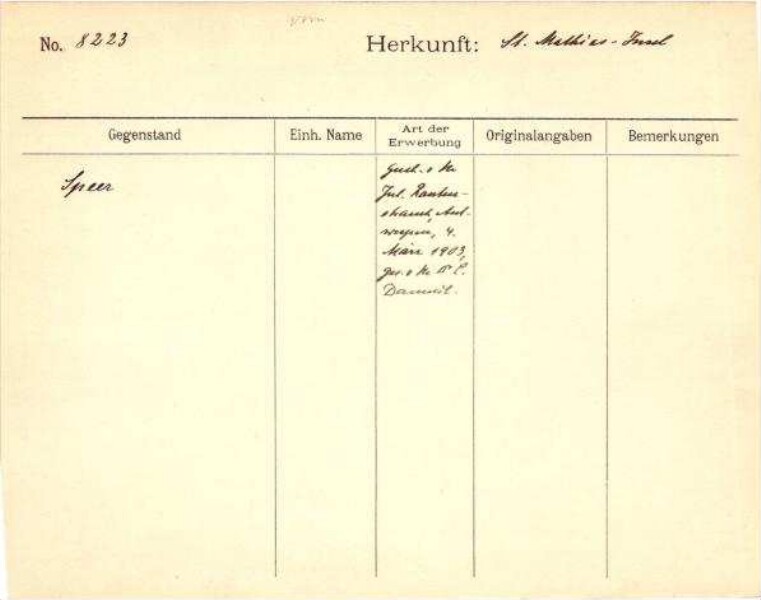 No. 8223
Herkunft: St. Mathias-Insel
Gegenstand
Einh. Name
Art der
Erwerbung
Originalangaben
Bemerkungen
Speer
Gesch. v. Hr.
Jul. Rauten-
strauch, Ant-
werpen, 4.
März 1903,
ges. v. Hr. Dr